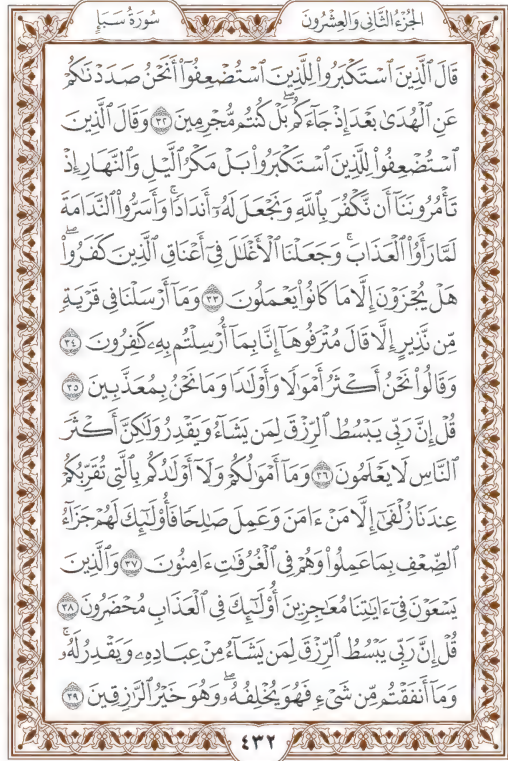 الجزء الثاني والعشرون
سورة سبإ
قَالَ ٱلَّذِينَ ٱسْتَكْبَرُوا۟ لِلَّذِينَ ٱسْتُضْعِفُوٓا۟ أَنَحْنُ صَدَدْنَٰكُمْ
عَنِ ٱلْهُدَىٰ بَعْدَ إِذْ جَآءَكُم ۖ بَلْ كُنتُم مُّجْرِمِينَ ٣٢ وَقَالَ ٱلَّذِينَ
ٱسْتُضْعِفُوا۟ لِلَّذِينَ ٱسْتَكْبَرُوا۟ بَلْ مَكْرُ ٱلَّيْلِ وَٱلنَّهَارِ إِذْ
تَأْمُرُونَنَآ أَن نَّكْفُرَ بِٱللَّهِ وَنَجْعَلَ لَهُۥٓ أَندَادًا ۚ وَأَسَرُّوا۟ ٱلنَّدَامَةَ
لَمَّا رَأَوُا۟ ٱلْعَذَابَ ۚ وَجَعَلْنَا ٱلْأَغْلَٰلَ فِىٓ أَعْنَاقِ ٱلَّذِينَ كَفَرُوا۟ ۖ
هَلْ يُجْزَوْنَ إِلَّا مَا كَانُوا۟ يَعْمَلُونَ ٣٣ وَمَآ أَرْسَلْنَا فِى قَرْيَةٍ
مِّن نَّذِيرٍ إِلَّا قَالَ مُتْرَفُوهَآ إِنَّا بِمَآ أُرْسِلْتُم بِهِۦ كَٰفِرُونَ ٣٤
وَقَالُوا۟ نَحْنُ أَكْثَرُ أَمْوَٰلًا وَأَوْلَٰدًا وَمَا نَحْنُ بِمُعَذَّبِينَ ٣٥
قُلْ إِنَّ رَبِّى يَبْسُطُ ٱلرِّزْقَ لِمَن يَشَآءُ وَيَقْدِرُ وَلَٰكِنَّ أَكْثَرَ
ٱلنَّاسِ لَا يَعْلَمُونَ ٣٦ وَمَآ أَمْوَٰلُكُمْ وَلَآ أَوْلَٰدُكُم بِٱلَّتِى تُقَرِّبُكُمْ
عِندَنَا زُلْفَىٰٓ إِلَّا مَنْ ءَامَنَ وَعَمِلَ صَٰلِحًا فَأُو۟لَٰٓئِكَ لَهُمْ جَزَآءُ
ٱلضِّعْفِ بِمَا عَمِلُوا۟ وَهُمْ فِى ٱلْغُرُفَٰتِ ءَامِنُونَ ٣٧ وَٱلَّذِينَ
يَسْعَوْنَ فِىٓ ءَايَٰتِنَا مُعَٰجِزِينَ أُو۟لَٰٓئِكَ فِى ٱلْعَذَابِ مُحْضَرُونَ ٣٨
قُلْ إِنَّ رَبِّى يَبْسُطُ ٱلرِّزْقَ لِمَن يَشَآءُ مِنْ عِبَادِهِۦ وَيَقْدِرُ لَهُۥ ۚ
وَمَآ أَنفَقْتُم مِّن شَىْءٍ فَهُوَ يُخْلِفُهُۥ ۖ وَهُوَ خَيْرُ ٱلرَّٰزِقِينَ ٣٩
٤٣٢